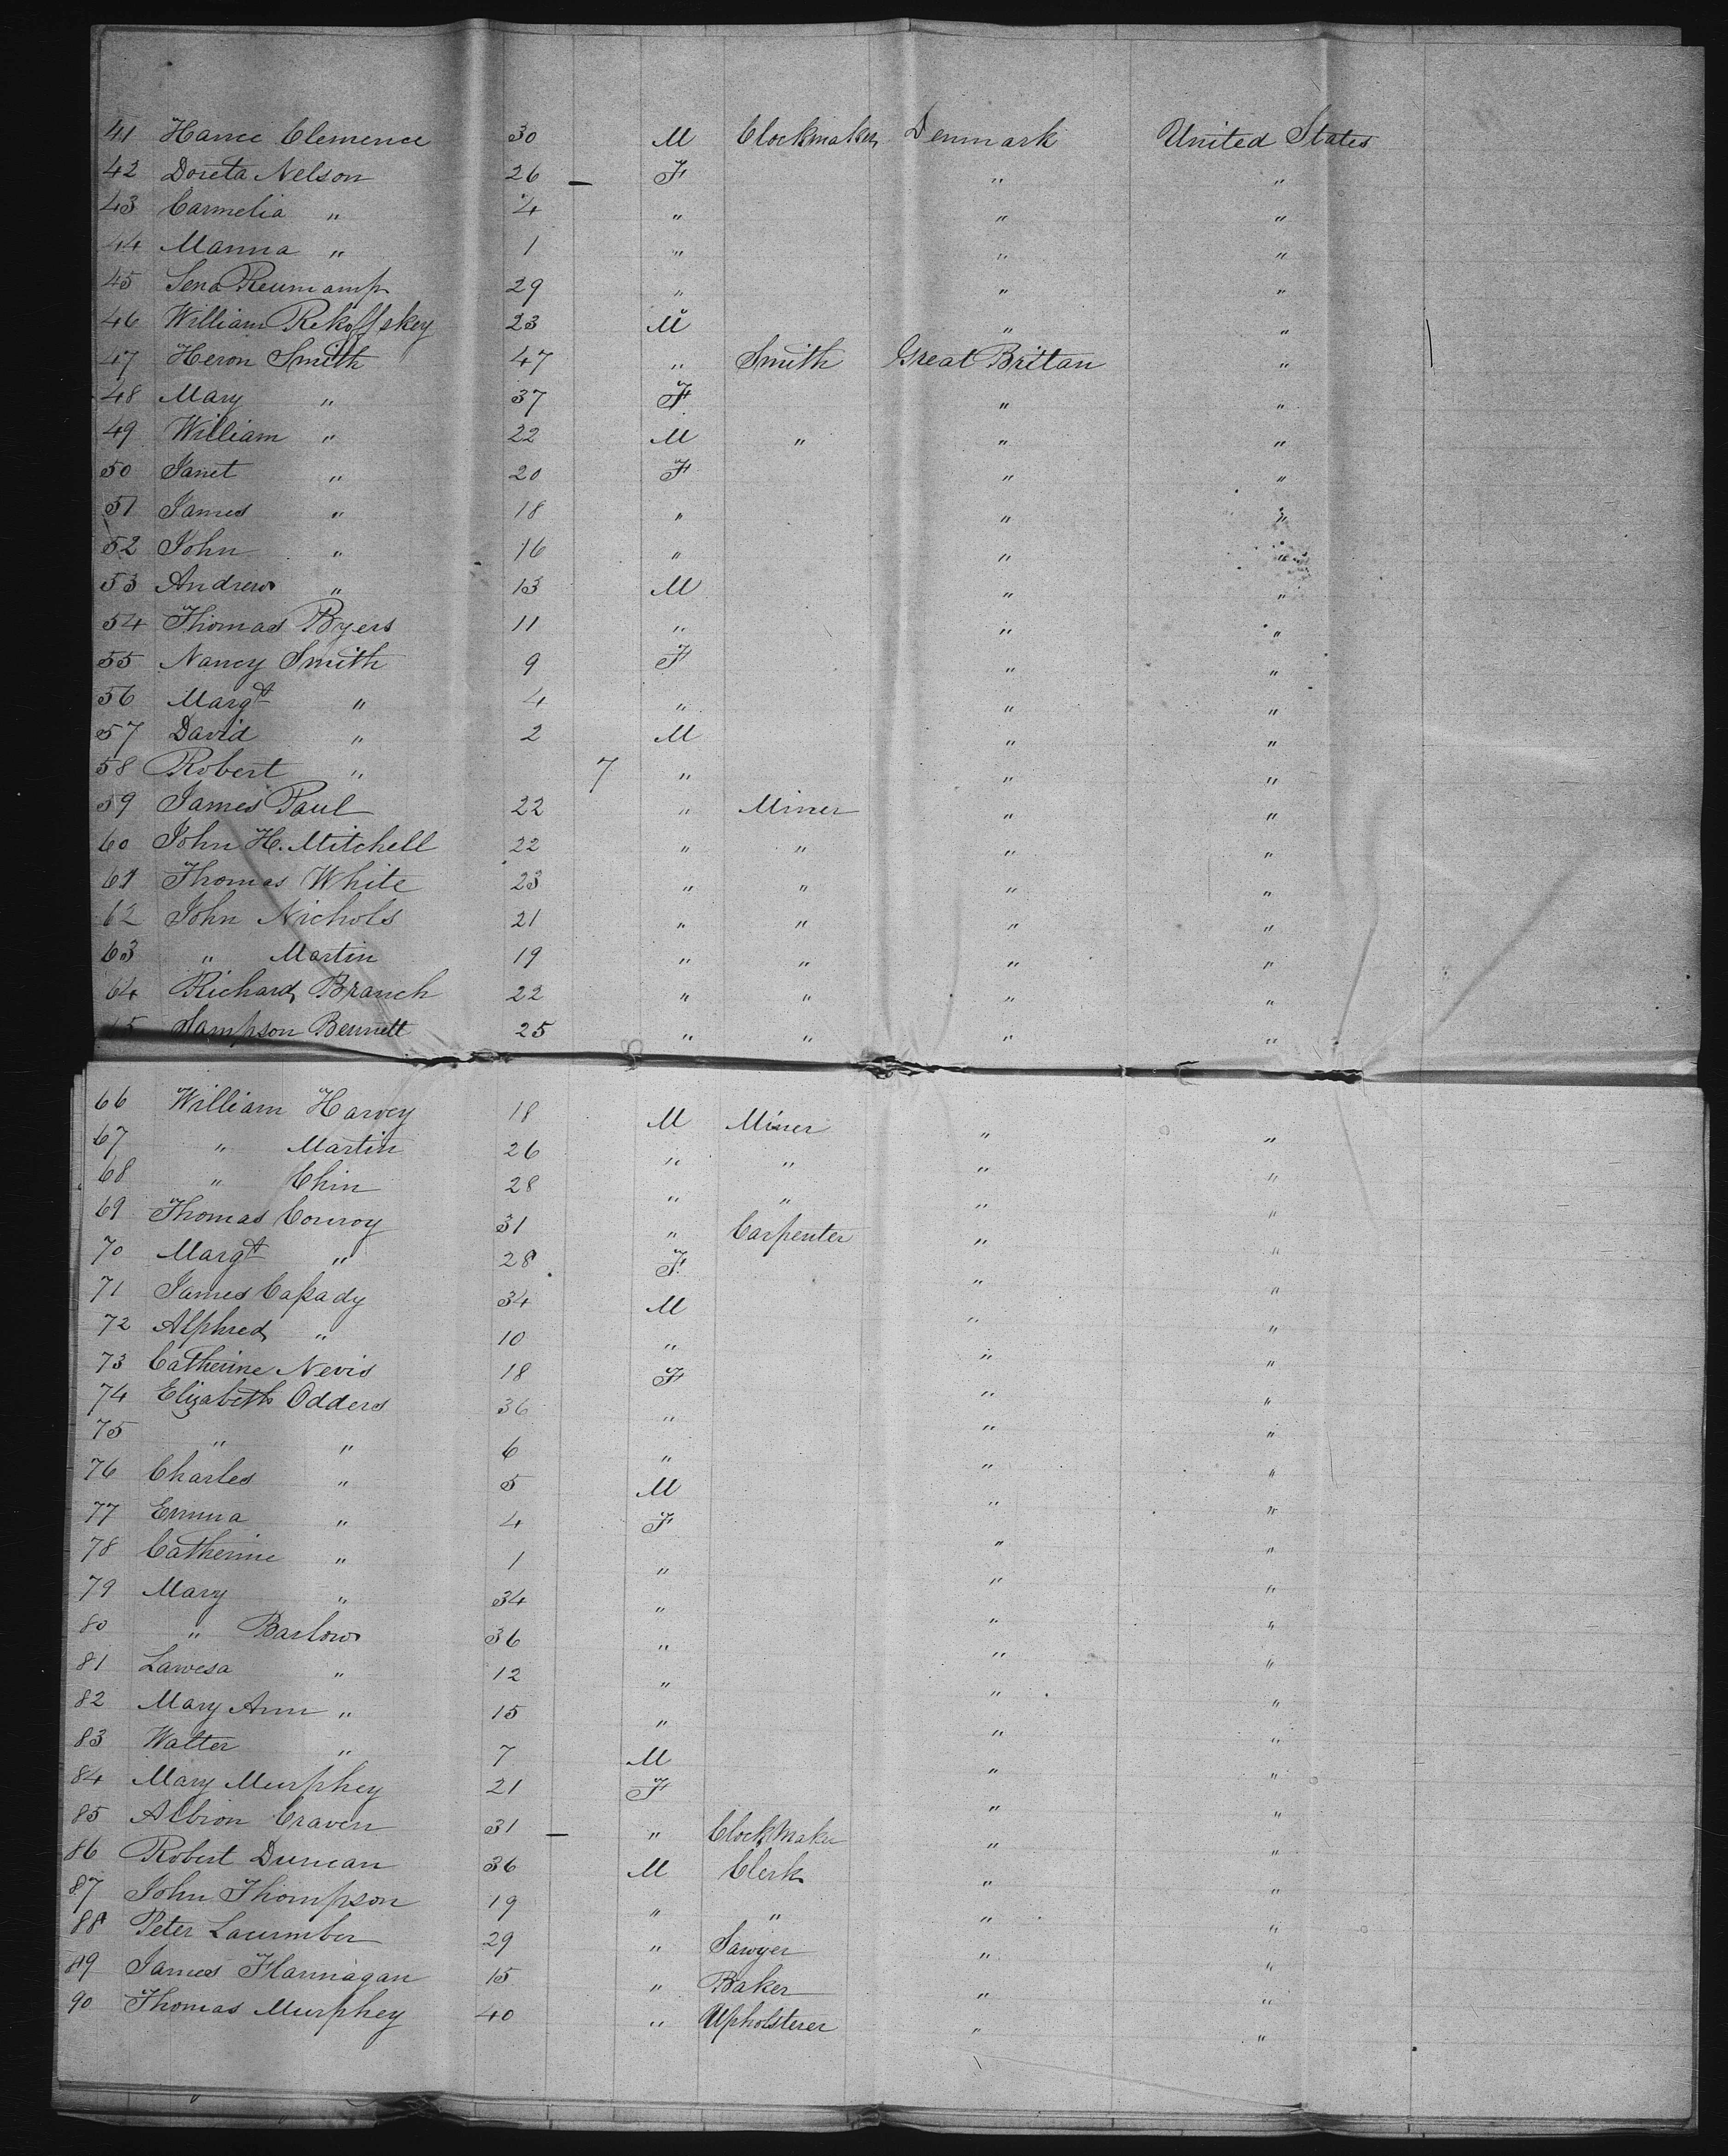 41 Hance Clemence 30 M Clockmaker Denmark United States
42 Doreta Nelson 26 — F " "
43 Carmelia " 4 " " "
44 Manna " 1 " " "
45 Sena Reumamp 29 " " "
46 William Rekoffskey 23 M " "
47 Heron Smith 47 " Smith Great Britan "
48 Mary " 37 F " "
49 William " 22 M " " "
50 Janet " 20 F " "
51 James " 18 " " "
52 John " 16 " " "
53 Andrew " 13 M " "
54 Thomas Byers 11 " " "
55 Nancy Smith 9 F " "
56 Margt " 4 " " "
57 David " 2 M " "
58 Robert " 7 " " "
59 James Paul 22 " Miner " "
60 John H. Mitchell 22 " " " "
61 Thomas White 23 " " " "
62 John Nichols 21 " " " "
63 " Martin 19 " " " "
64 Richard Branch 22 " " " "
65 Sampson Bennett 25 " " " "
66 William Harvey 18 M Miner " "
67 " Martin 26 " " " "
68 " Chin 28 " " " "
69 Thomas Conroy 31 " Carpenter " "
70 Margt " 28 F " "
71 James Caſsady 34 M " "
72 Alphred " 10 " " "
73 Catherine Nevis 18 F " "
74 Elizabeth Odders 36 " " "
75 " " 6 " " "
76 Charles " 5 M " "
77 Emma " 4 F " "
78 Catherine " 1 " " "
79 Mary " 34 " " "
80 " Barlow 36 " " "
81 Lawesa " 12 " " "
82 Mary Ann " 15 " " "
83 Walter " 7 M " "
84 Mary Murphey 21 F " "
85 Albion Craven 31 — " Clockmaker " "
86 Robert Duncan 36 M Clerk " "
87 John Thompson 19 " " " "
88 Peter Lacumber 29 " Sawyer " "
89 James Flannagan 15 " Baker " "
90 Thomas Murphey 40 " Upholsterer " "